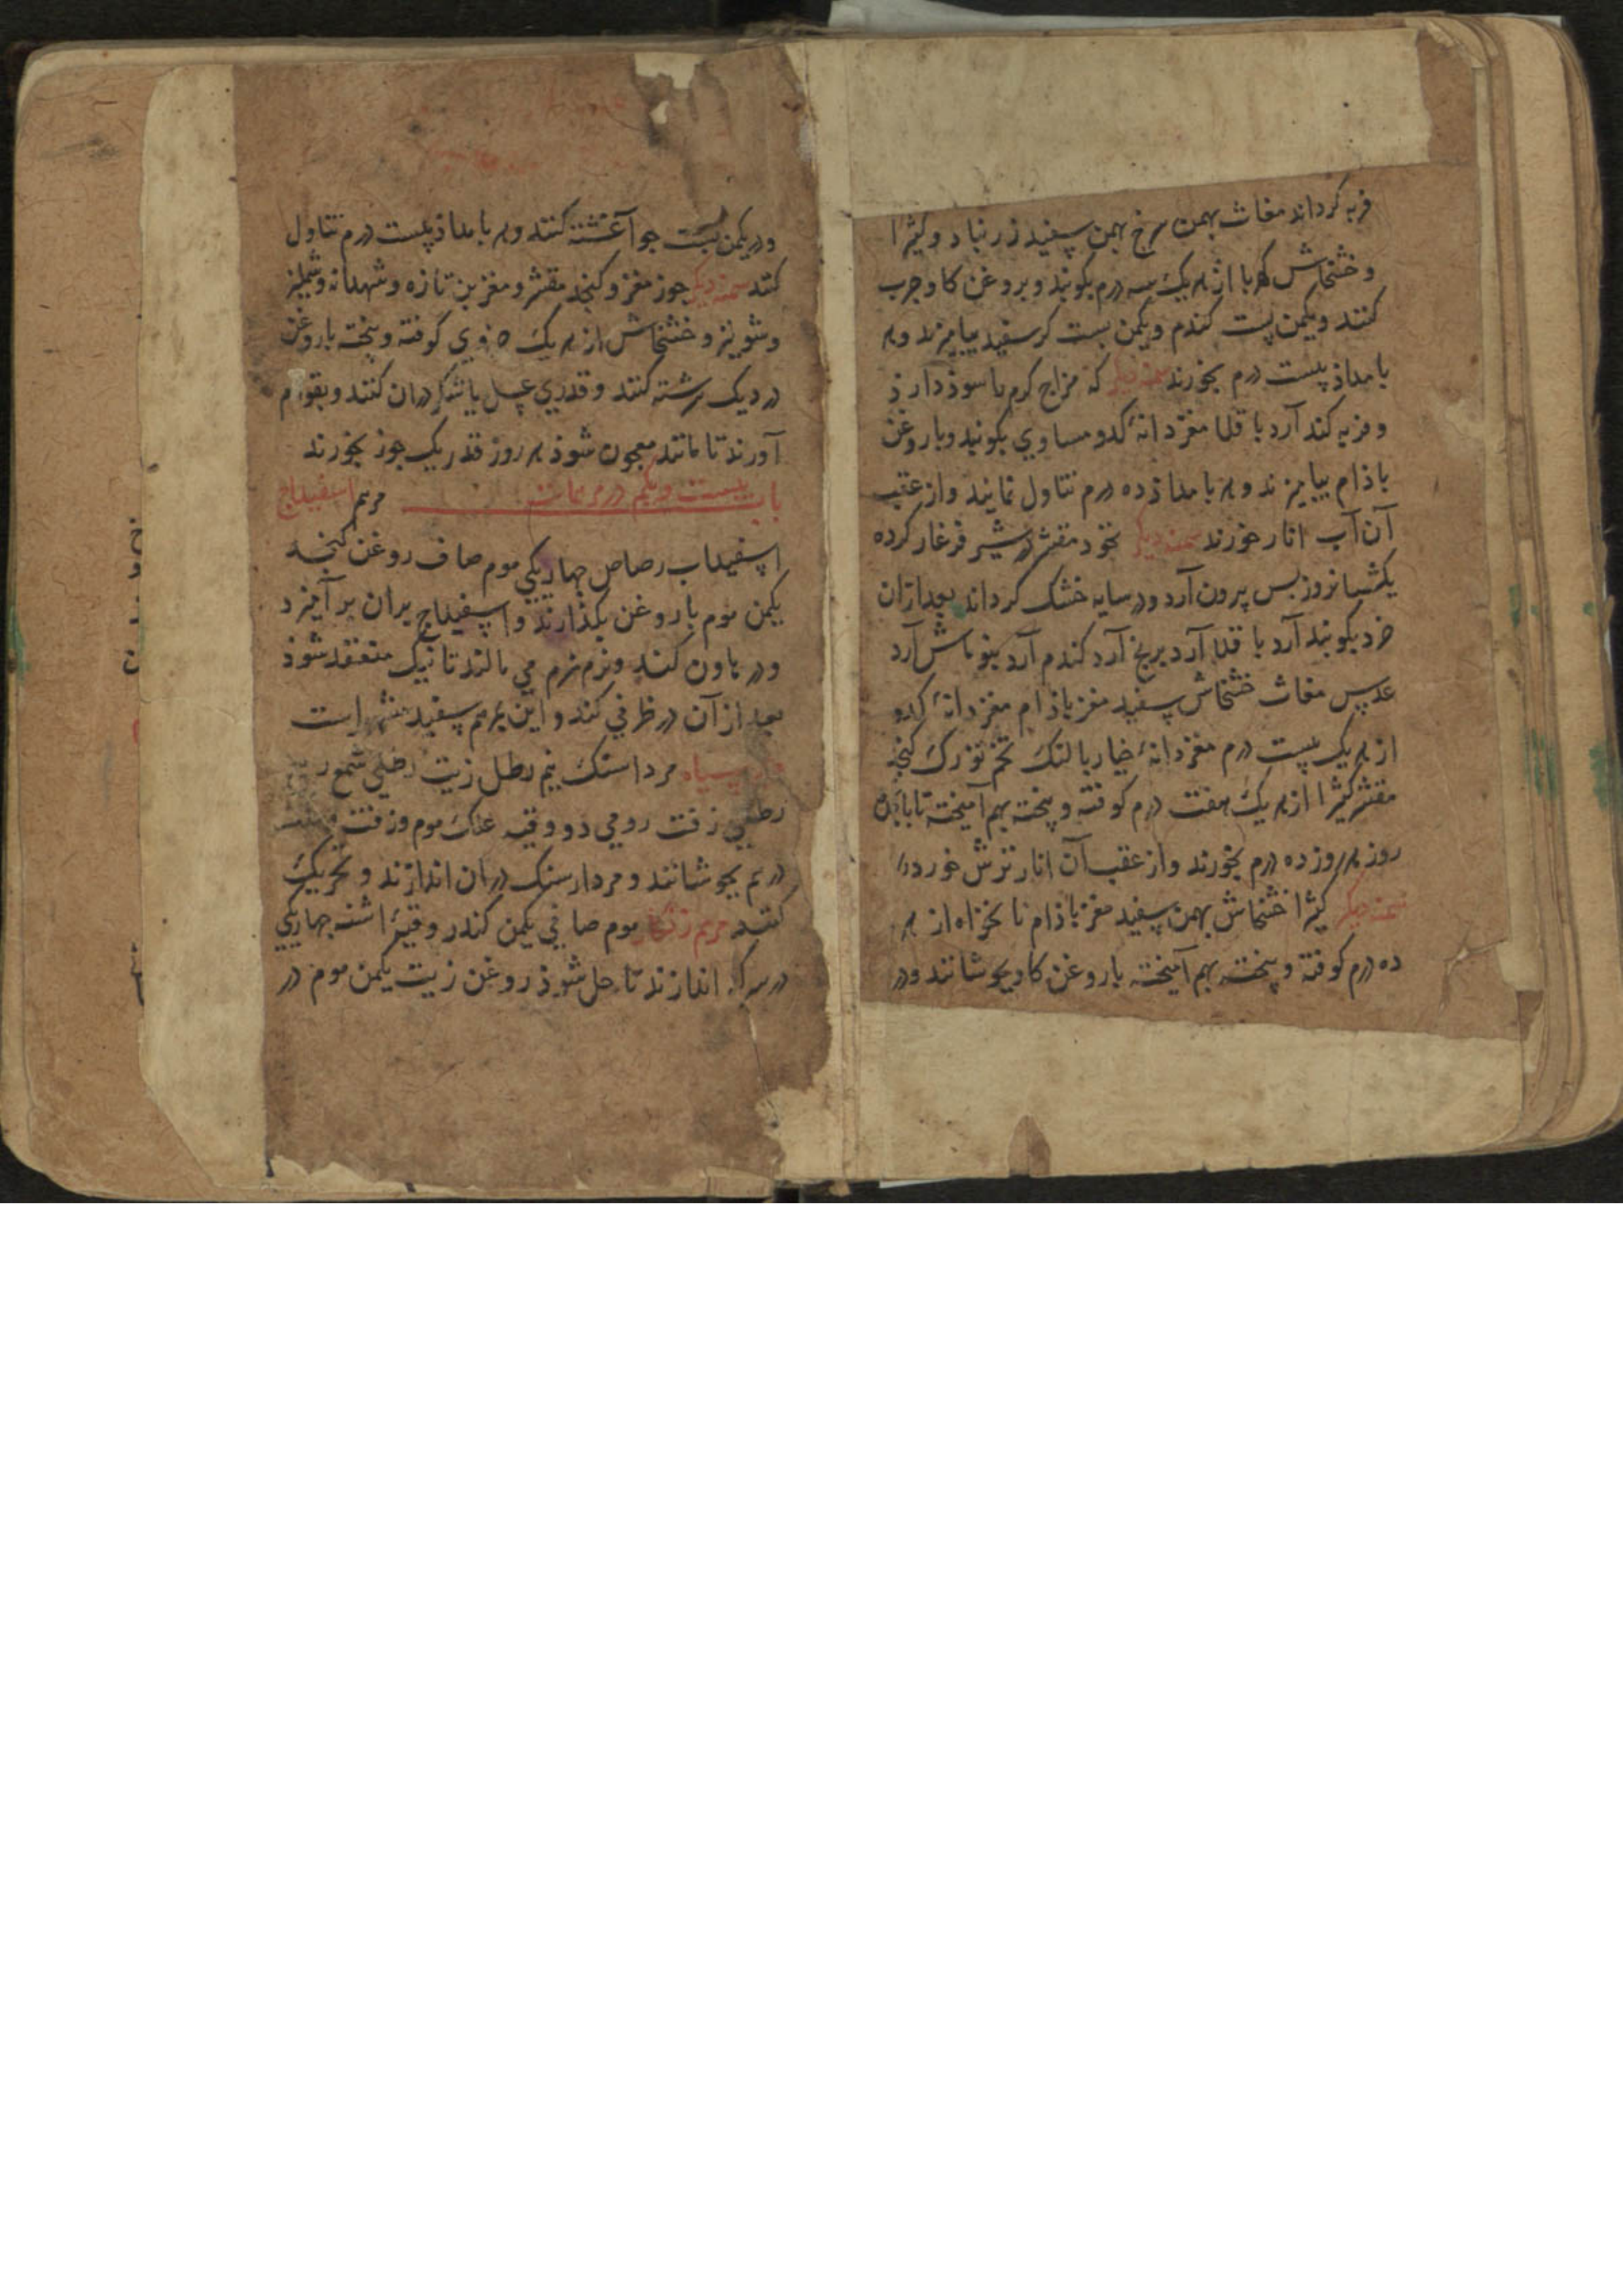 فربه گرداند مغاث بهمن سرخ بهمن سپفید زرنباد و کثیرا
و خشخاش کهربا از هر یک سه درم بکوبند و بروغن کاو چرب
کنند و یکمن پست کندم و یکمن پست کر سفید بیامیزند و هر
بامداذ بیست درم بخورند سمنه دیکر که مزاج کرم با سوذ دارذ
و فربه کند آرد باقلا مغز دانهٔ کدو مساوي بکوبند و با روغن
باذام بیامیزند و هر بامداذ ده درم تناول نمایند و از عقب
آن آب انار خورند سمنه دیکر نخود مقشر در شیر فرغار کرده
یکشبانروز بس بیرون آرد و در سایه خشک کرداند بعد ازان
خرد بکوبند آرد باقلا آرد برنج آرد کندم آرد بنوماش آرد
عدپس مغاث خشخاش سپفید مغز باذام مغز دانهٔ کدو
از هر یک بیست درم مغز دانهٔ خیار بالنک تخم تورک کنجد
مقشر کثیرا از هر یک هفت درم کوفته و پخته بهم آمیخته تا
روز هر روز ده درم بخورند و از عقب آن انار ترش خورد
سمنه دیکر کثیرا خشخاش بهمن سپفید مغز باذام نانخواه از هر
ده درم کوفته و پخته بهم آمیخته با روغن کاو بجوشانند و در
و در یکمن پست جو آغشته کنند و هر بامداذ بیست درم تناول
کنند سمنه دیکر جوز مغز و کنجذ مقشر و مغز بن تازه و شهدانه و
و شونیز و خشخاش از هر یک جزوي کوفته و پخته با روغن
در دیک سرشته کنند و قدري عسل یا شکر دران کنند و بقوام
آورند تا مانند معجون شوذ هر روز قدر یک جوز بخورند
باب بیست و یکم در مرهمات مرهم اسفیداج
اسپفیداب رصاص چهاریکي موم صاف روغن کنجد
یکمن موم با روغن بکذارند و اسپفیداج بران بر آمیزد
و در هاون کنند و نرم نرم مي مالند تا نیک منعقد شوذ
بعد از آن در ظرفي کند و این مرهم سپفید مشهور است
سیاه مرداسنک نیم رطل زیت رطلي شمع
رطلي زفت رومي دو وقیه علک موم و زفت
درهم بجوشانند و مردارسنک دران اندازند و تحریک
کنند مرهم زنکار موم صافي یکمن کندر وقیهٔ اشنه چهاریکي
در سرکه اندازند تا حل شوذ روغن زیت یکمن موم در